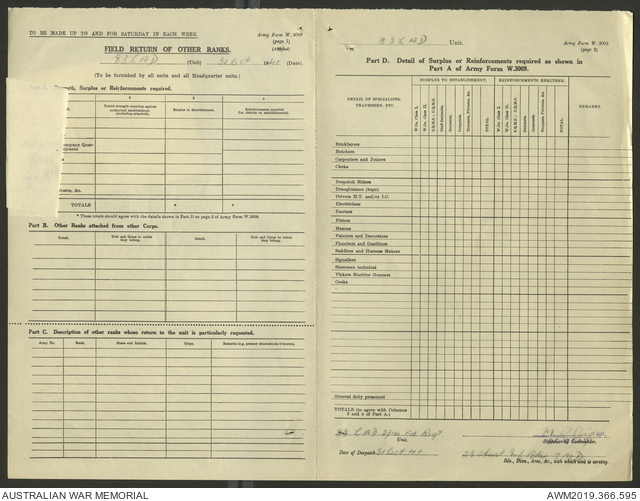 TO BE MADE UP TO AND FOR SATURDAY IN EACH WEEK.
Army Form W. 3009
(page 1)
(Adapted)
FIELD RETURN OF OTHER RANKS.
83 L A D (Unit) 31 Oct 1941 (Date)
(To be furnished by all units and all Headquarter units.)
Strength, Surplus or Reinforcements required.
Posted strength counting against authorized establishment (excluding attached).
Surplus to Establishment.
Reinforcements required
TOTALS
* *
* These totals should agree with the details shown in Part D on page 2 of Army Form W.3009.
Part B. Other Ranks attached from other Corps.
Detail.
Unit and Corps to which they belong.
Detail.
Unit and Corps to which they belong.
Part C. Description of other ranks whose return to the unit is particularly requested.
Army No.
Rank.
Name and Initials.
Corps.
Remarks (e.g., present whereabouts if known).
83 L A D Unit.
Army Form W. 3009
(page 2)
Part D. Detail of Surplus or Reinforcements required as shown in
Part A of Army Form W.3009.
DETAIL OF SPECIALISTS, TRADESMEN, ETC.
SURPLUS TO ESTABLISHMENT.
REINFORCEMENTS REQUIRED.
REMARKS
W.Os. Class I.
W.Os. Class II.
Staff-Serjeants.
Serjeants.
Corporals.
TOTAL
W.Os. Class I.
W.Os. Class II.
Serjeants.
Corporals.
TOTAL
Bricklayers
Butchers
Carpenters and Joiners
Clerks
Despatch Riders
Draughtsmen (topo)
Drivers M.T. and/or I.C.
Electricians
Farriers
Fitters
Masons
Painters and Decorators
Plumbers and Gasfitters
Saddlers and Harness Makers
Signallers
Storemen technical
Vickers Machine Gunners
Cooks
General duty personnel
TOTALS (to agree with Columns
3 and 4 of Part A.)
Unit.
Signature of Commander.
Date of Despatch 31 Oct 41.
Bde., Divn., Area, &c., with which unit is serving.
AUSTRALIAN WAR MEMORIAL
AWM2019.366.595